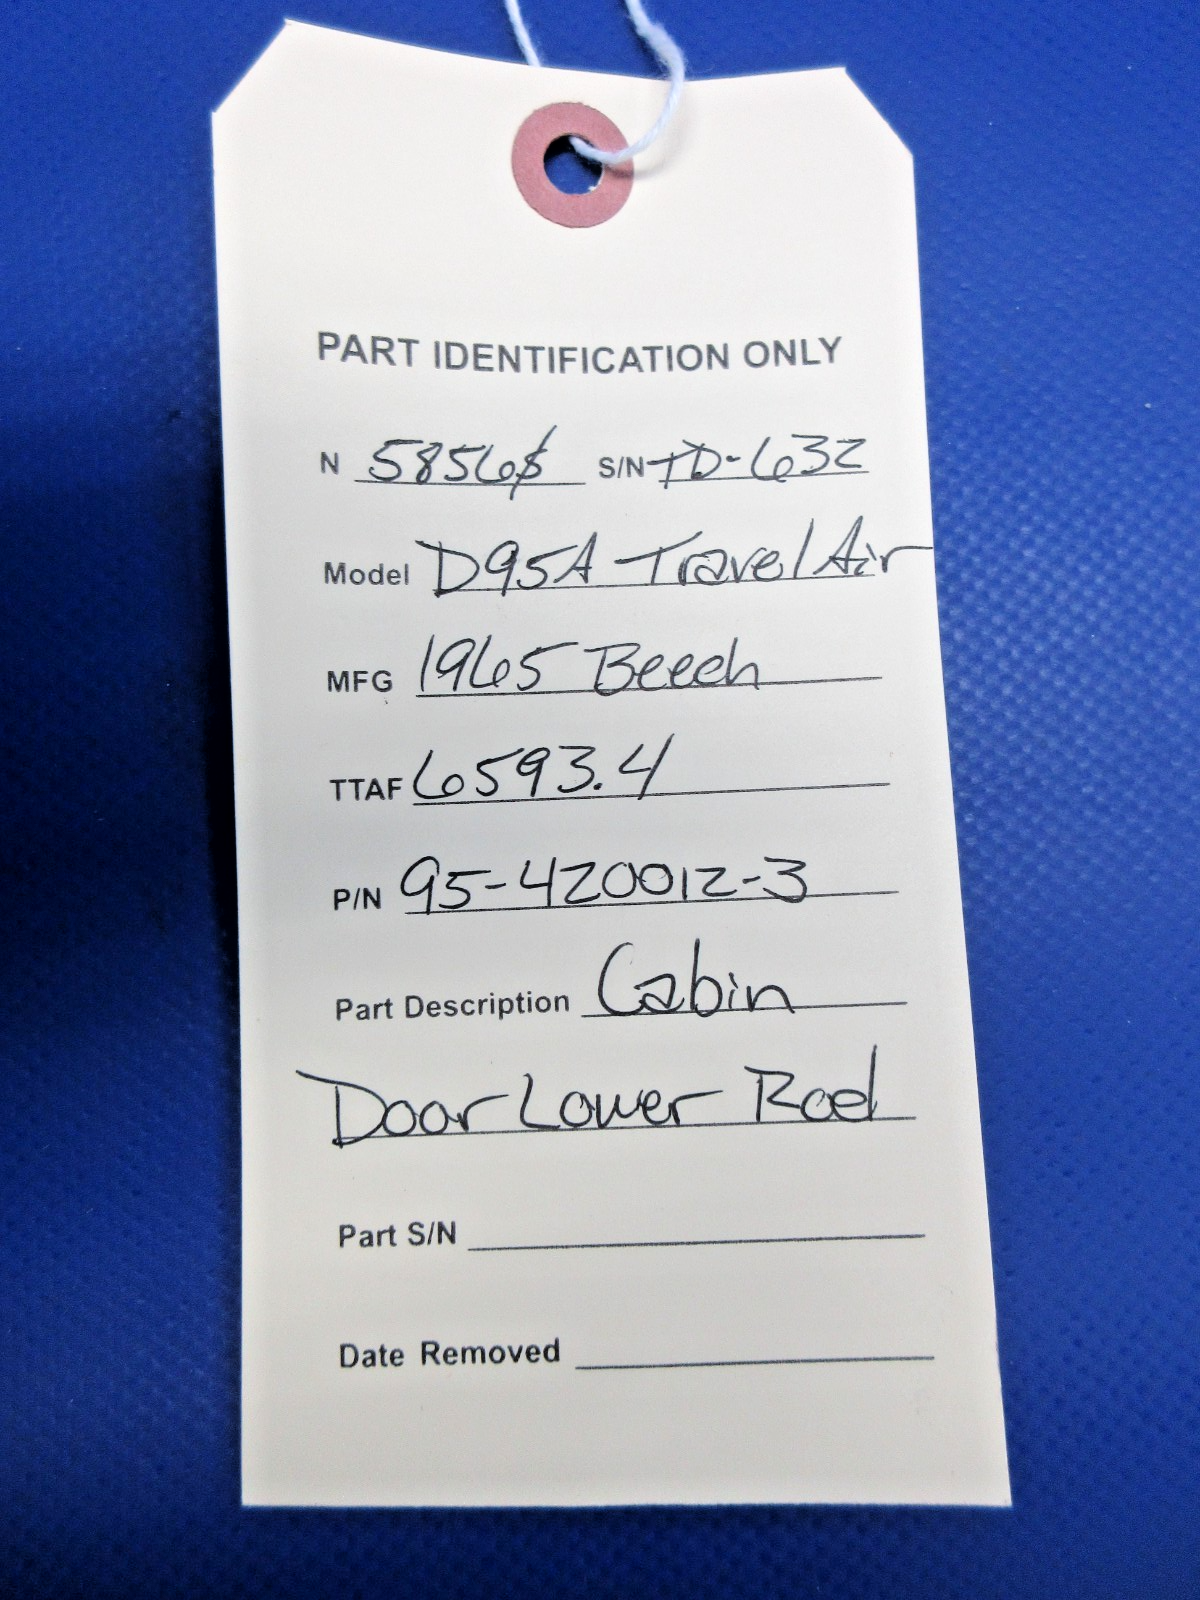 PART IDENTIFICATION ONLY
N 5856S S/N TD-632
Model D95A Travel Air
MFG 1965 Beech
TTAF 6593.4
P/N 95-420012-3
Part Description Cabin
Door Lower Rod
Part S/N
Date Removed